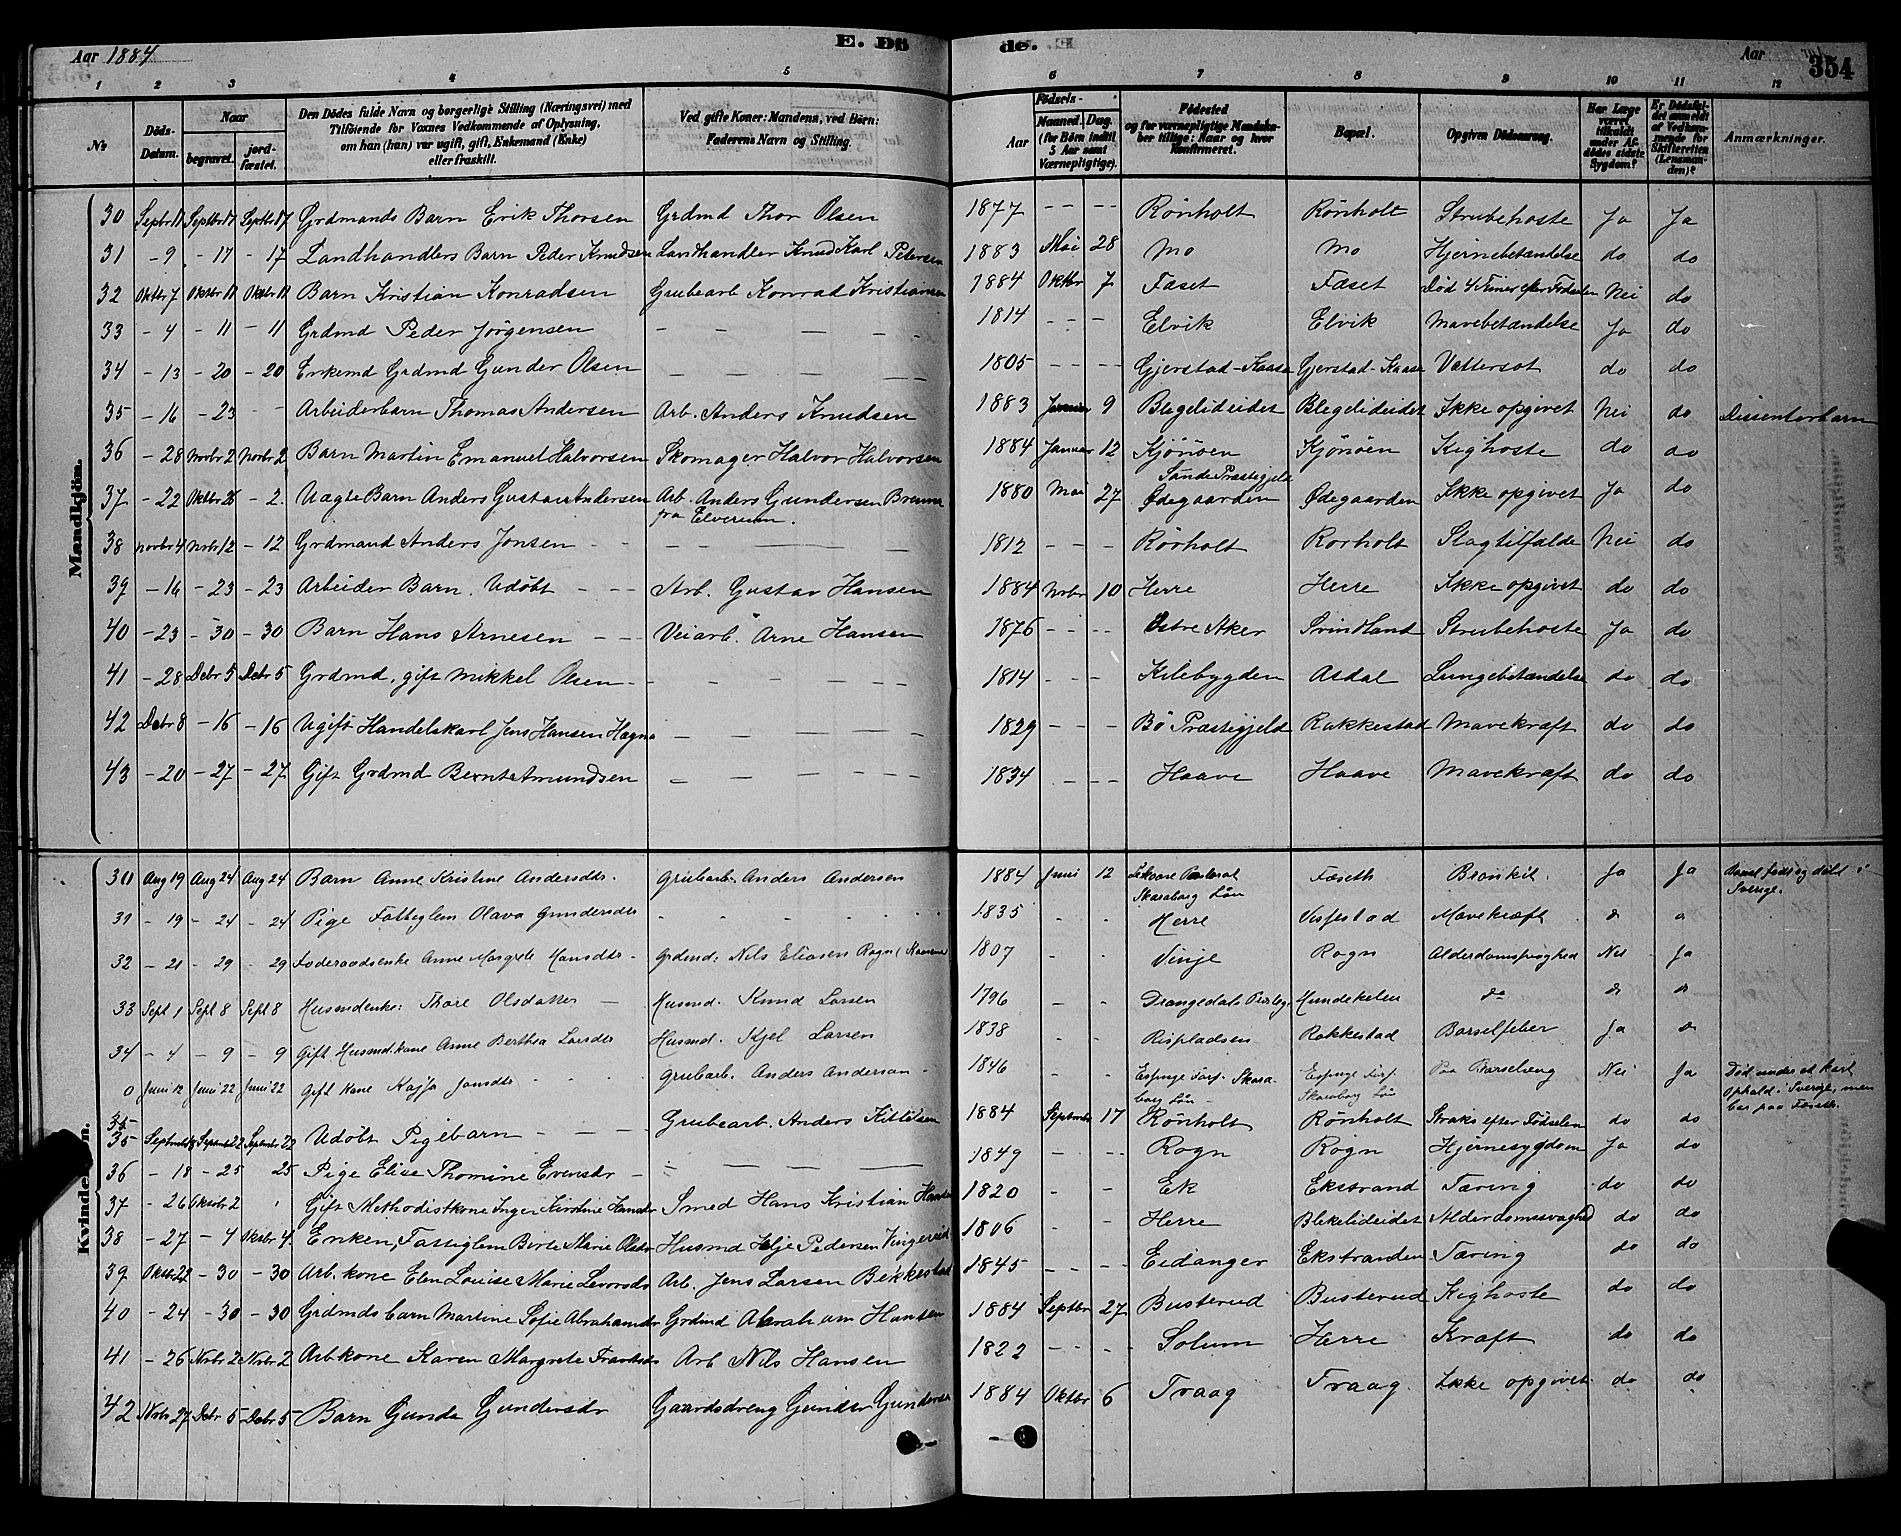 Aar 1884. E. Dö de. Aar 354
1 2 3 4 5 6 7 8 9 10 11 12
No
Döds-Datum.
Naar
begravet.
jord-fæstet.
Den Dödes fulde Navn og borgerlige Stilling (Næringsvei) med Tilföiende for Voxnes Vedkommende af Oplysning, om han (hun) var ugift, gift, Enkemand (Enke) eller fraskilt.
Ved gifte Koner: Mandens, ved Börn: Faderens Navn og Stilling.
Födsels-
Aar
Maaned. Dag.
(for Börn indtil 5 Aar samt Værnepligtige).
Födested og for værnepligtige Mandskaber tillige: Naar og hvor konfirmeret.
Bopæl.
Opgiven Dödsaarsag.
Har Læge været tilkaldt under Afdödes sidste Sygdom?
Er Dödsfaldet anmeldt af Vedkommende for Skifteretten (Lensmanden)?
Anmærkninger.
Mandkjön.
30 Septbr 11 Septbr 17 Septbr 17 Grdmands Barn Erik Thorsen Grdmd Thor Olsen 1877 - - - - Rönholt Rönholt Strubehoste Ja Ja
31 - 9 - 17 - 17 Landhandlers Barn Peder Knudsen Landhandler Knud Karl Petersen 1883 Mai 28 Mo Mo Hjernebetændelse do do
32 Oktbr 7 Oktbr 11 Oktbr 11 Barn Kristian Konradsen Grubearb Konrad Kristiansen 1884 Oktbr 7 Faset Faset Död 4 Timer efter Födselen Nei do
33 - 4 - 11 - 11 Grdmd Peder Jörgensen - - - - - 1814 - - - Elvik Elvik Mavebetændelse Ja do
34 - 13 - 20 - 20 Enkemd Grdmd Gunder Olsen - - - - - 1805 - - - - Gjerstad-Kaasa Gjerstad-Kaasa Vattersot do do
35 - 16 - 23 - - Arbeiderbarn Thomas Andersen Arb. Anders Knudsen 1883 Januar 9 Blegelideidet Blegelideidet Ikke opgivet Nei do Dissenterbarn
36 - 28 Novbr 2 Novbr 2 Barn Martin Emanuel Halvorsen Skomager Halvor Halvorsen 1884 Januar 12 Kjönöen Kjönöen Kighoste do do
37 - 22 Oktbr 26 - 2. Uægte Barn Anders Gustav Andersen Arb. Anders Gundersen Brenna fra Elverum. 1880 Mai 27 Sande Præstegjeld Ödegaarden Ödegaarden Ikke opgivet Ja do
38 Novbr 4 Novbr 12 - 12 Grdmand Anders Jonsen - - - - - 1812 - - - Rörholt Rorholt Slagtilfælde Nei do
39 - 16 - 23 - 23 Arbeider Barn. Udöbt - - - Arb. Gustav Hansen 1884 Novbr 10 Herre Herre Ikke opgivet do do
40 - 23 - 30 - 30 Barn Hans Arnesen - - Veiarb. Arne Hansen 1876 - - - Östre Aker Svindland Strubehoste Ja do
41 - 28 Debr 5 Debr 5 Grdmd, gift Mikkel Olsen - - - - - - 1814 - - - Kilebygden Asdal Lungebetændelse do do
42 Debr 8 - 16 - 16 Ugift Handelskarl Jens Hansen Hægna - - - - - 1829 - - - Bö Præstegjeld Rakkestad Mavekræft do do
43 - 20 - 27 - 27 Gift Grdmd Bernt Amundsen - - - - - 1834 - - - Haave Haave Mavekræft do do
Kvindekjön.
30 Aug 19 Aug 24 Aug 24 Barn Anne Kristine Andersdtr. Grubearb. Anders Andersen 1884 Juni 12 Skaraborg Län Fæseth Bronkit. Ja Ja Barnet født og døbt i Sverige.
31 - 19 - 24 - 24 Pige Fattiglem Olava Gundersdtr - - - - - 1835 - - Herre Vissestad Mavekræft do do
32 - 21 - 29 - 29 Foderaadsenke Anne Margrete Hansdtr - Grdmd: Nils Eliasen Rogn 1807 - - Vinje Rogn Alderdomssvaghed Nei Ja
33 Sept 1 Sept 8 Sept 8 Husmdenke: Thore Olsdatter - Husmd. Knud Larsen 1796 - - Drangedals Præsteg. Hundekelen do do do
34 - 4 - 9 - 9 Gift Husmd.kone Anne Berthea Larsdtr Husmd. Kjel Larsen 1838 - Rispladsen Rakkestad Barselfeber Ja do
0 Juni 12 Juni 22 Juni 22 Gift Kone Kajsa Jansdtr - - - Grubarb. Anders Anderson - 1846 - - Espinge Torp Skaraborg Län - Espinge Torp Skaraborg Län Paa Barselseng Nei Ja Död under et kort Ophold i Sverige, men bor paa Fæseth.
35 Septembr 18 Septembr 22 Septembr 22 Udöbt Pigebarn - - - Grubearb. Anders Kittilsen 1884 Septembr 17 Rönholt Rönholt Straks efter Födselen do do
36 - 18 - 25 25 Pige Elise Thomine Evensdr - - - - - 1849 - - - Rogn Rogn Hjernesygdom Ja do
37 - 26 Oktbr 2 " Gift Methodistkone Inger Kirstine Hansdr Smed Hans Kristian Hansen 1820 - - Ek Ekstrand Tæring do do
38 - 27 - 4 Oktbr 4 Enken, Fattiglem Birte Marie Olsdr Husmd Helje Pedersen Vingereid 1806 - - Herre Blekelideidet Alderdomssvaghed do do
39 Oktbr 27 - 30 - 30 Arb.kone Elen Louise Marie Levorsdr Arb. Jens Larsen Bekkestad 1845 - - - - Eidanger Ekstranden Tæring do do
40 - 24 - 30 - 30 Grdmds barn Martine Sofie Abrahamsdr Grdmd Abraham Hansen 1884 Septbr 27 Busterud Busterud Kighoste do do
41 - 26 Novbr 2 Novbr 2 Arbkone Karen Margrete Frantsdr Arb Nils Hansen 1822 - - - - Solum Herre Kræft do do
42 Novbr 27 Debr 5 Debr 5 Barn Gunda Gundersdr Gaardsdreng Gunder Gundersen 1884 Oktbr 6 Traag Traag. Ikke opgivet do do